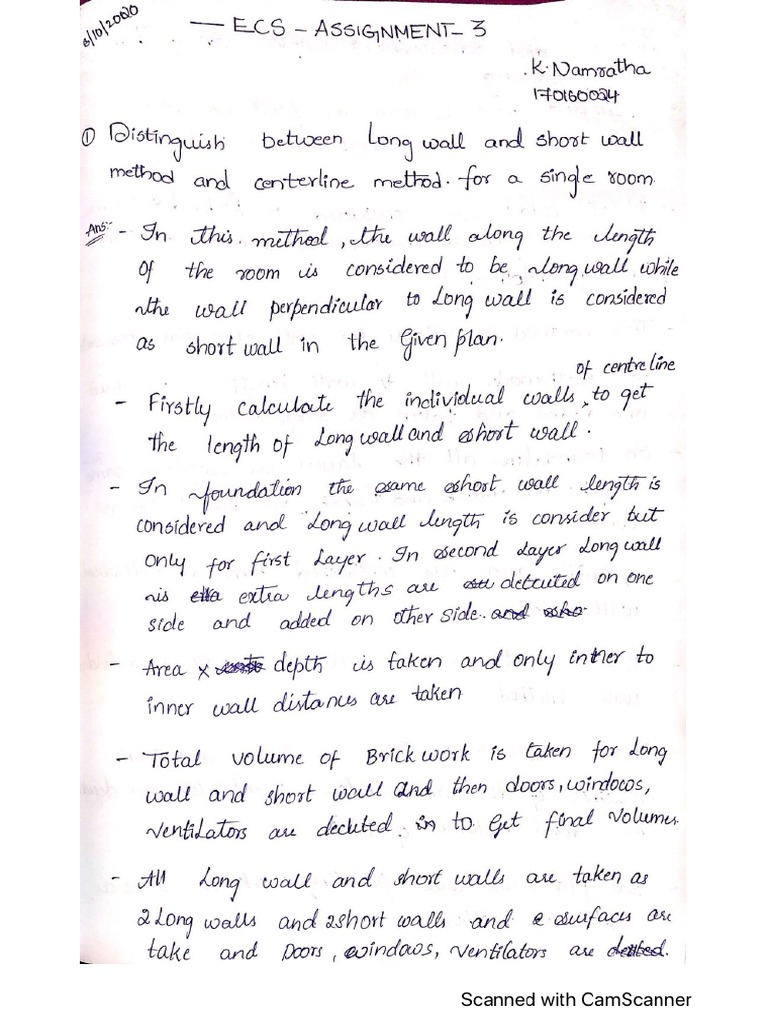 6/10/2020
— ECS - ASSIGNMENT- 3
K. Namratha
170160024
① Distinguish between Long wall and short wall
method and centerline method. for a single room.
Ans:- - In this method, the wall along the length
of the room is considered to be, long wall while
the wall perpendicular to Long wall is considered
as short wall in the Given plan.
of centre line
- Firstly calculate the individual walls, to get
the length of Long wall and short wall.
- In foundation the same short wall length is
considered and Long wall length is consider but
only for first Layer. In second Layer Long wall
is extra lengths are detcuted on one
side and added on other side.
- Area x depth is taken and only inther to
inner wall distances are taken
- Total volume of Brick work is taken for Long
wall and short wall and then doors, windows,
ventilators are decuted. to Get final Volumes.
- All Long wall and short walls are taken as
2 Long walls and 2 short walls and 2 surfaces are
take and Doors, windows, Ventilators are
Scanned with CamScanner